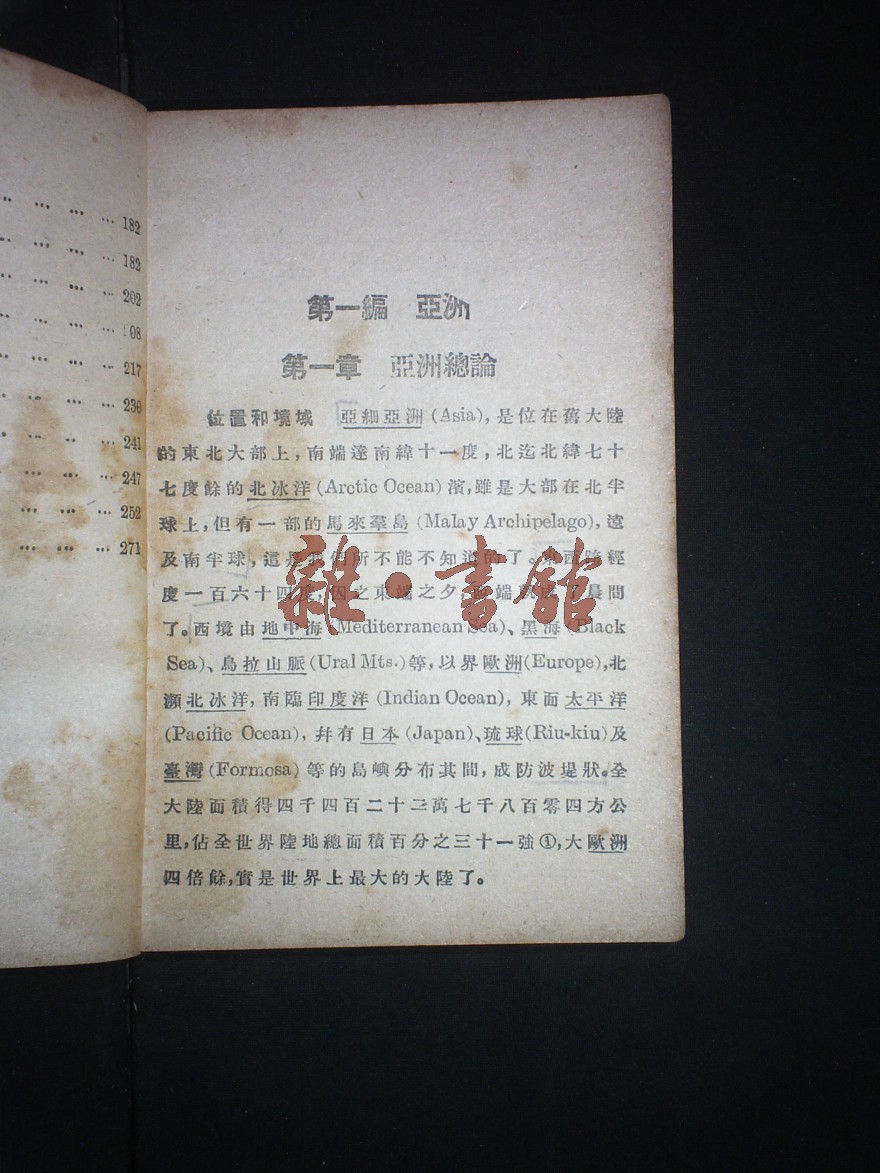 … … … 182
… … … 182
… … … 202
… … … 08
… … … 217
… … … 230
… … … 241
… … … 247
… … … 252
… … … 271
第一編 亞洲
第一章 亞洲總論
位置和境域 亞細亞洲 (Asia), 是位在舊大陸
的東北大部上, 南端達南緯十一度, 北迄北緯七十
七度餘的北冰洋 (Arctic Ocean) 濱, 雖是大部在北半
球上, 但有一部的馬來羣島 (Malay Archipelago), 遠
及南半球, 這是我們所不能不知道的了。東西跨經
度一百六十四度, 因之東端之夕, 西端就成了晨間
了。西境由地中海 (Mediterranean Sea)、黑海 (Black
Sea)、烏拉山脈 (Ural Mts.) 等, 以界歐洲 (Europe), 北
瀕北冰洋, 南臨印度洋 (Indian Ocean), 東面太平洋
(Pacific Ocean), 幷有日本 (Japan)、琉球 (Riu-kiu) 及
臺灣 (Formosa) 等的島嶼分布其間, 成防波堤狀。全
大陸面積得四千四百二十二萬七千八百零四方公
里, 佔全世界陸地總面積百分之三十一強①, 大歐洲
四倍餘, 實是世界上最大的大陸了。
雜·書館